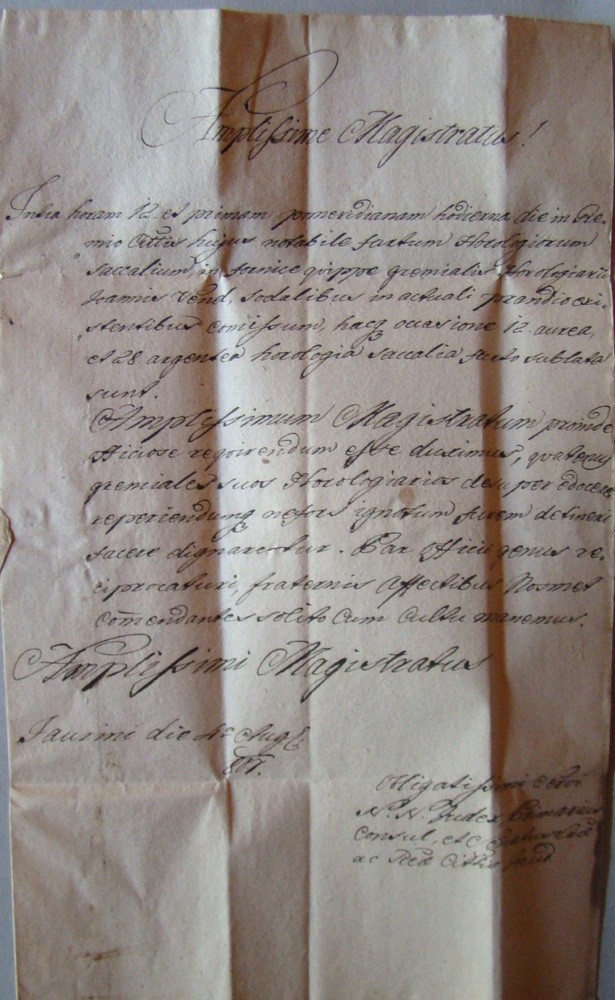 Amplissime Magistratus!
Intra horam 12. et primam pomeridianam hodierna die in Gre-
mio Cittis hujus notabile furtum Horologiorum
saccalium, in fornice quippe gremialis Horologiarii
Joannis Vend, sodalibus in actuali prandio exi-
stentibus comissum, hacq occasione 12. aurea,
et 28 argentea horologia saccalia furto sublata
sunt.
Amplissimum Magistratum proinde
officiose requirendum esse duximus, quatenus
gremiales suos Horologiarios desuper edocere
reperiendumq nefors ignotum furem detineri
facere dignaretur. Par officii genus re-
ciprocaturi, fraternis affectibus Nosmet
comendantes solito cum cultu manemus.
Amplissimi Magistratus
Jaurini die 4a Aug.
Obligatissimi Servi
N. N. Judex Primarius
Consul, etc
ac Reg Cittis